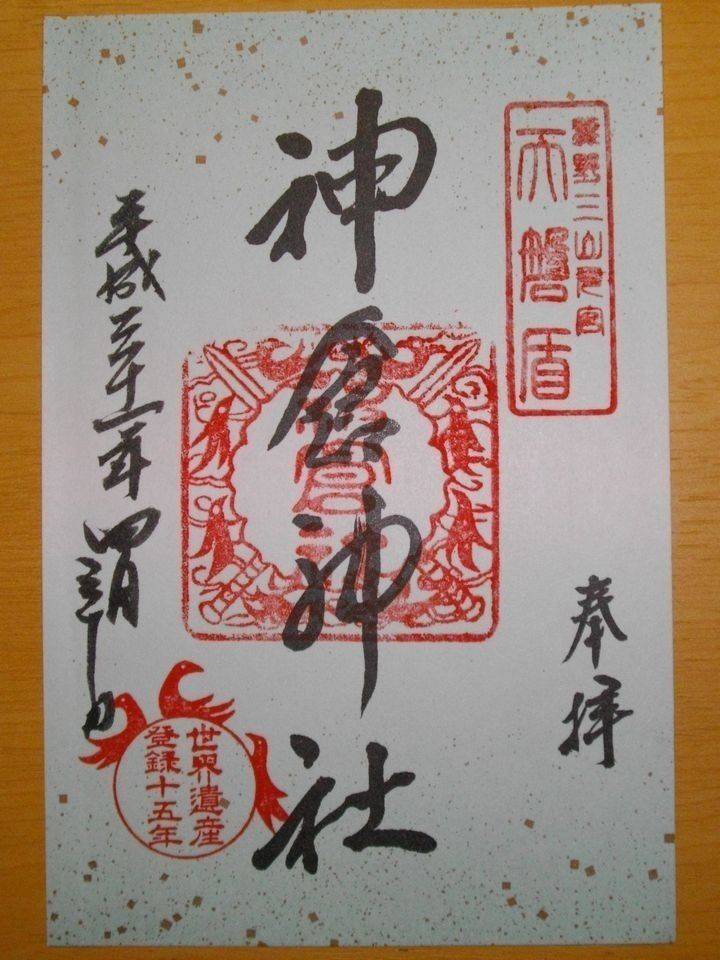 熊野三山元宮
天磐盾
奉拝
神倉神社
平成三十一年四月
世界遺産
登録十五年